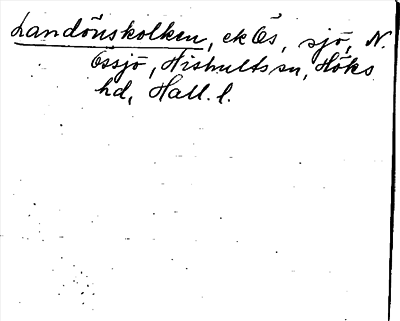 Landönskolken, ek Ös, sjö, N.
Össjö, Hishultssn, Höks
hd, Hall. l.